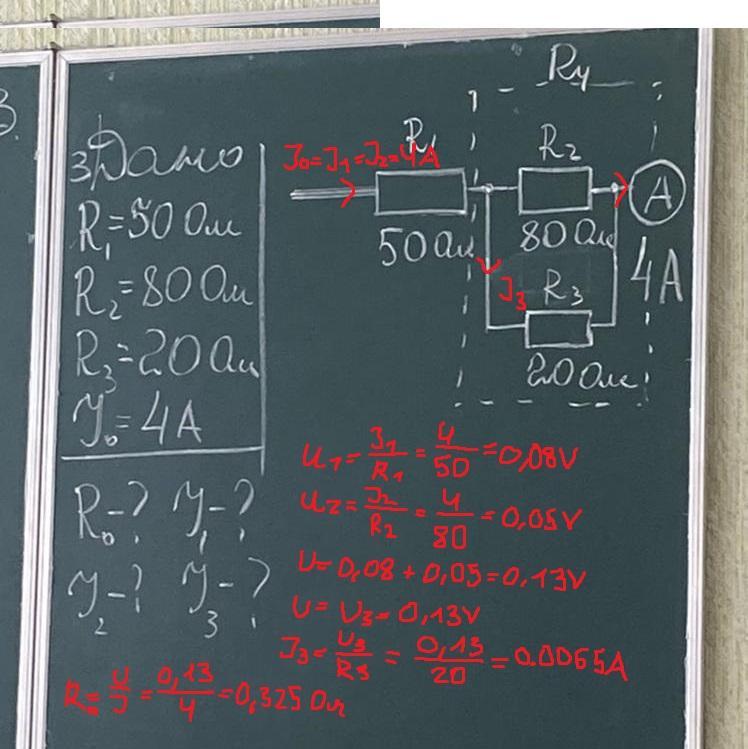 3.
Дано
R₁=50 Ом
R₂=80 Ом
R₃=20 Ом
J₀=4A
R₀-? J₁-?
J₂-? J₃-?
R₄
J₀=J₁=J₂=4A
R₁
R₂
A
50 Ом
80 Ом
4A
J₃
R₃
20 Ом
U₁=J₁/R₁=4/50=0,08V
U₂=J₂/R₂=4/80=0,05V
U=0,08+0,05=0,13V
U=U₃=0,13V
J₃=U₃/R₃=0,13/20=0.0065A
R₀=U/J=0,13/4=0,325 Ом